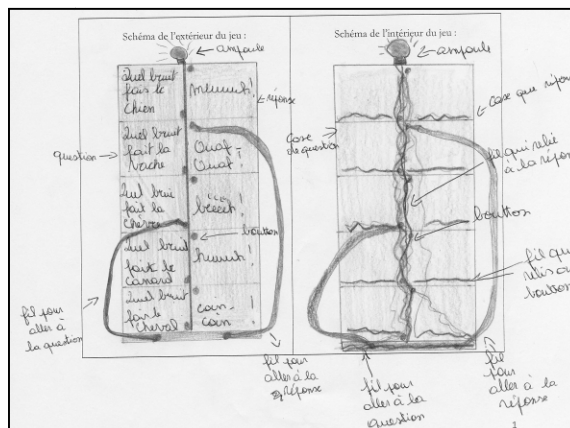 Schéma de l'extérieur du jeu :
ampoule
Quel bruit
fais le
Chien
meuuuh!
réponse
question
Quel bruit
fait la
Vache
Ouaf-
Ouaf!
Quel bruit
fait la
chèvre
bêêêh!
boutton
Quel bruit
fait le
canard
hiuuuh!
Quel bruit
fais le
cheval
coin-
coin!
fil pour
aller à
la question
fil pour
aller à la
réponse
Schéma de l'intérieur du jeu :
ampoule
case que
case
de question
fil qui relié
à la
boutton
fil qui
boutton
fil pour
aller à la
question
fil
pour
aller à la
réponse